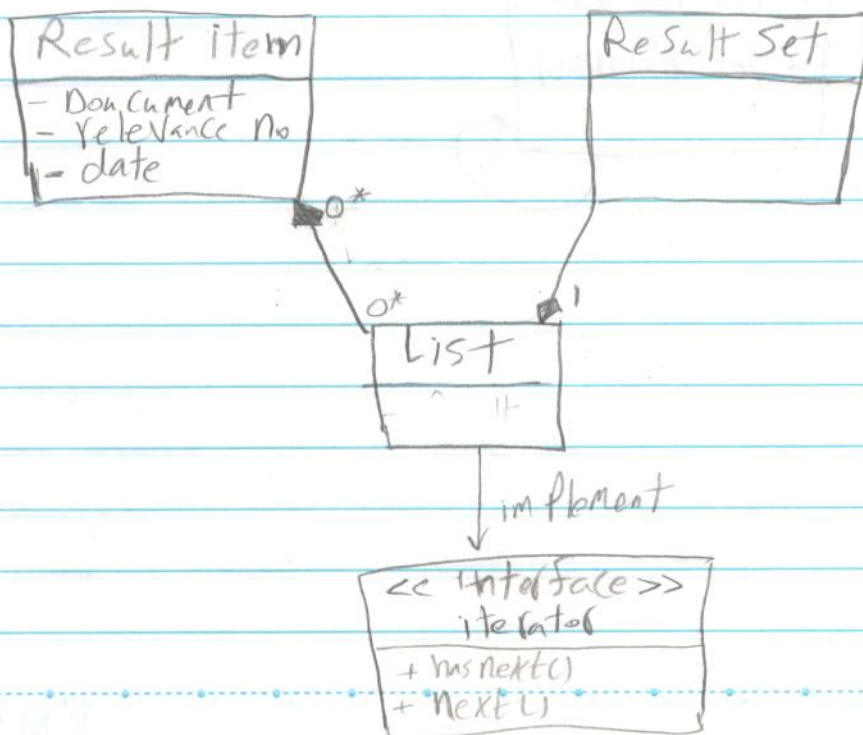 Result item
- Doucument
- relevance no
- date
Result Set
0*
0*
1
List
implement
<< interface >>
iterator
+ hasnext()
+ next()